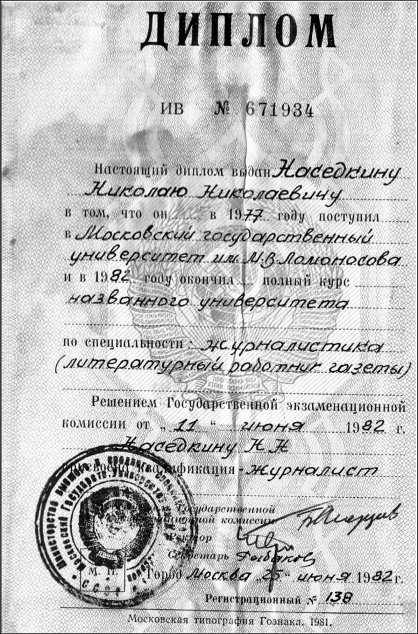 ДИПЛОМ
ИВ № 671934
Настоящий диплом выдан Наседкину
Николаю Николаевичу
в том, что он в 1977 году поступил
в Московский государственный
университет им. М.В. Ломоносова
и в 1982 году окончил полный курс
названного университета
по специальности: журналистика
(литературный работник газеты)
Решением Государственной экзаменационной
комиссии от „11“ июня 1982 г.
Наседкину Н.Н.
квалификация - журналист
Государственной
комиссии
Ректор
Секретарь
М. П. Город Москва „25“ июня 1982 г.
Регистрационный № 138
Московская типография Гознака. 1981.
СССР